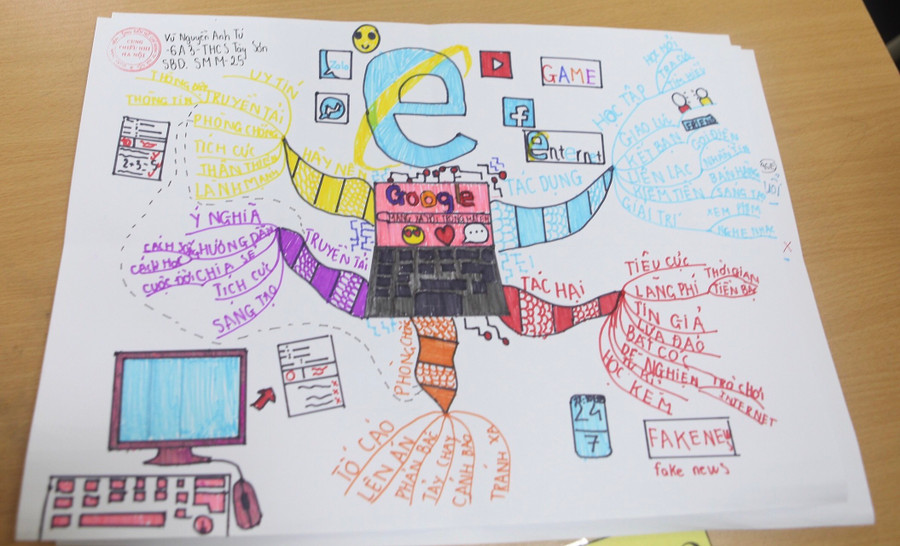 Vũ Nguyễn Anh Tú
-6A3-THCS Tây Sơn
SBD. SMM-25
Zalo
GAME
enternet
Google
UY TÍN
THÔNG TIN
TRUYỀN TẢI
PHÒNG CHỐNG
TÍCH CỰC
THÂN THIỆN
LÀNH MẠNH
HÃY NÊN
2+3=5
Ý NGHĨA
CÁCH HỌC
HƯỚNG DẪN
CUỘC ĐỜI
CHIA SẺ
TÍCH CỰC
SÁNG TẠO
TRUYỀN TẢI
PHÒNG CHỐNG
TỐ CÁO
LÊN ÁN
PHẢN BÁC
TẨY CHAY
CẢNH BÁO
TRÁNH XA
TÁC DỤNG
HỌC TẬP
HỌC HỎI
TRA TỪ
GIAO LƯU
KẾT BẠN
FRIEND
LIÊN LẠC
GỌI ĐIỆN
NHẮN TIN
KIẾM TIỀN
BÁN HÀNG
SÁNG TẠO
GIẢI TRÍ
XEM PHIM
NGHE NHẠC
TÁC HẠI
TIÊU CỰC
LÃNG PHÍ
THỜI GIAN
TIỀN BẠC
TIN GIẢ
LỪA ĐẢO
BẮT CÓC
DỄ NGHIỆN
TRÒ CHƠI
INTERNET
HỌC KÉM
24
7
FAKENEWS
fake news